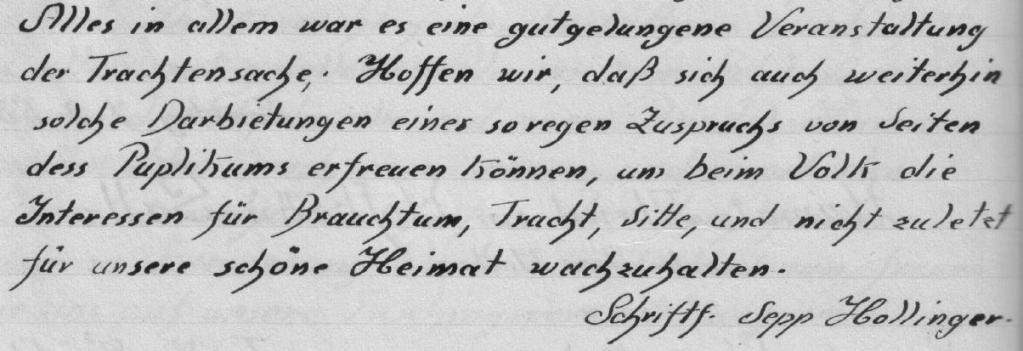 Alles in allem war es eine gutgelungene Veranstaltung
der Trachtensache,. Hoffen wir, daß sich auch weiterhin
solche Darbietungen eines so regen Zuspruchs von Seiten
dess Puplikums erfreuen können, um beim Volk die
Interessen für Brauchtum, Tracht, Sitte, und nicht zuletzt
für unsere schöne Heimat wachzuhalten.
Schriftf. Sepp Hollinger.